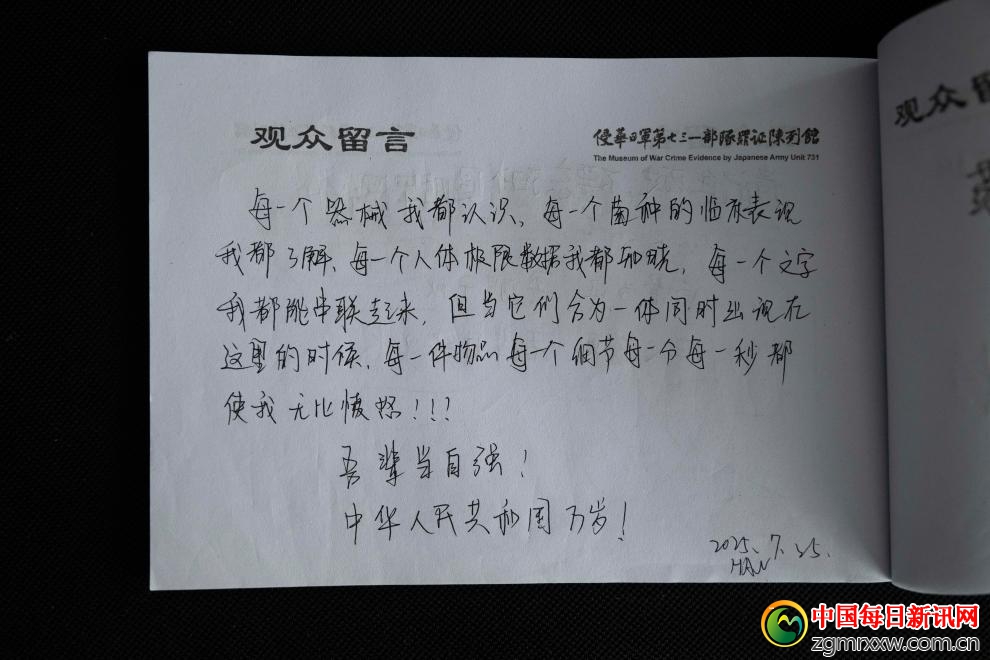 观众留言
侵華日軍第七三一部隊罪证陳列館
The Museum of War Crime Evidence by Japanese Army Unit 731
每一个器械我都认识，每一个菌种的临床表现
我都了解，每一个人体极限数据我都知晓，每一个文字
我都能串联起来，但当它们合为一体同时出现在
这里的时候，每一件物品每一个细节每一分每一秒都
使我无比愤怒！！！
吾辈当自强！
中华人民共和国万岁！
2025.7.25.
观众留
中国每日新讯网
zgmrxxw.com.cn